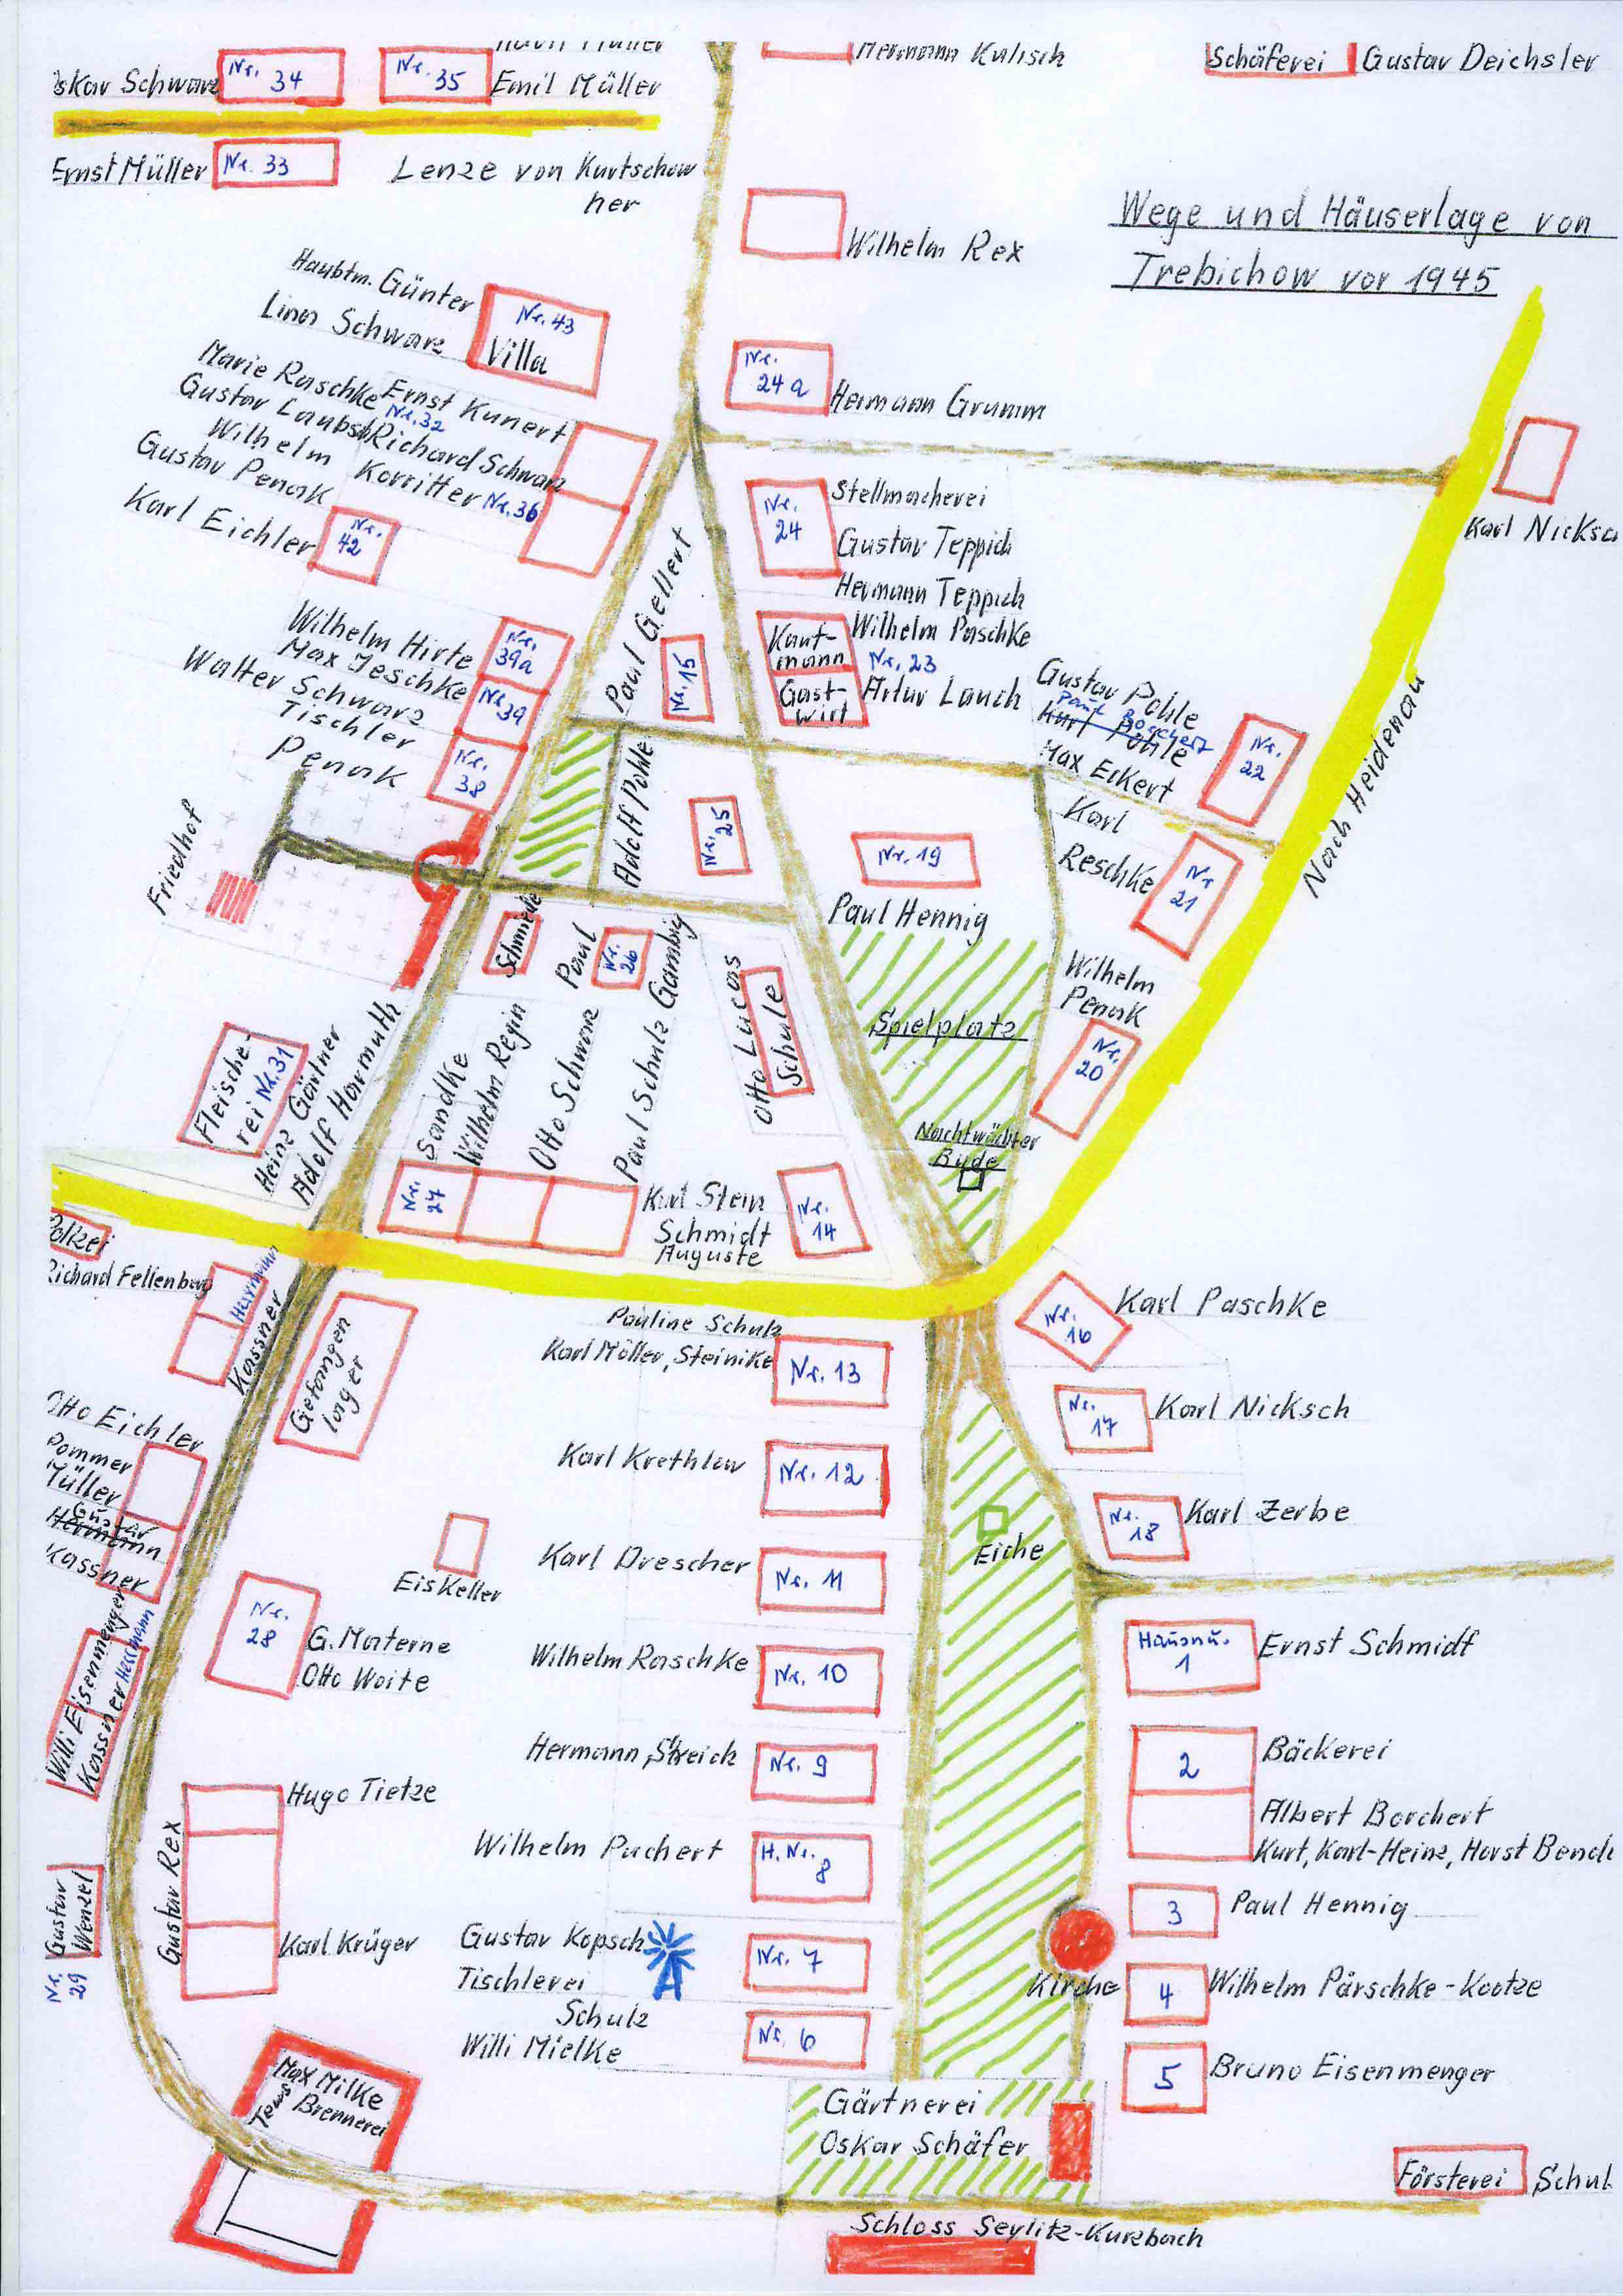 Schwarz
Nr. 34
Nr. 35
Emil Müller
Hermann Kulisch
Schäferei
Gustav Deichsler
Ernst Müller
Nr. 33
Lenze von Kurtschow
her
Wilhelm Rex
Wege und Häuserlage von
Trebichow vor 1945
Haubtm. Günter
Lina Schwarz
Nr. 43
Villa
Nr.
24a
Hermann Grumm
Marie Raschke
Ernst Kunert
Gustav
Nr. 32
Richard Schwarz
Wilhelm
Korritter Nr. 36
Gustav Penak
Karl Eichler
Nr.
42
Karl
Nr.
24
Stellmacherei
Gustav Teppich
Hermann Teppich
Paul Gellert
Nr. 15
Kauf-
mann
Wilhelm Paschke
Nr. 23
Gast-
wirt
Artur Lauch
Wilhelm Hirte
Nr.
39a
Max Jeschke
Nr
39
Walter Schwarz
Tischler
Penak
Nr.
38
Gustav Pohle
Paul Borchert
Kurt Pohle
Max Eckert
Nr.
22
Nach Heidenau
Karl
Reschke
Nr
21
Adolf Pohle
Nr. 25
Nr. 19
Paul Hennig
Friedhof
Schmiede
Paul
Nr.
26
Gambig
Otto Lucas
Schule
Spielplatz
Wilhelm
Penak
Nr.
20
Nachtwächter
Bude
Fleische-
rei Nr. 31
Heinz Gärtner
Adolf Harmuth
Sandke
Wilhelm Regin
Otto Schwarz
Paul Schulz
Nr.
27
Karl Stein
Schmidt
Auguste
Nr.
14
Polizei
Richard Fellenberg
Herrmann
Kassner
Gefangen
lager
Pauline Schulz
Karl Möller, Steinike
Nr. 13
Nr.
16
Karl Paschke
Nr.
17
Karl Nicksch
Otto Eichler
Pommer
Müller
Gustav
Hermann
Kassner
Karl Krethlow
Nr. 12
Nr.
18
Karl Zerbe
Eiskeller
Eiche
Karl Drescher
Nr. 11
Nr.
28
G. Materne
Otto Woite
Willi Eisenmenger
Kassner Herrmann
Wilhelm Raschke
Nr. 10
Hausnu.
1
Ernst Schmidt
Hermann Streich
Nr. 9
2
Bäckerei
Hugo Tietze
Albert Borchert
Kurt, Karl-Heinz, Horst
Gustav Rex
Wilhelm Puchert
H. Nr.
8
3
Paul Hennig
Gustav
Wenzel
Nr.
29
Karl Krüger
Gustav Kopsch
Tischlerei
Nr. 7
Kirche
4
Wilhelm Pärschke-Kootze
Schulz
Willi Mielke
Nr. 6
5
Bruno Eisenmenger
Max Milke
Brennerei
Gärtnerei
Oskar Schäfer
Försterei
Schloss Seylitz-Kurzbach